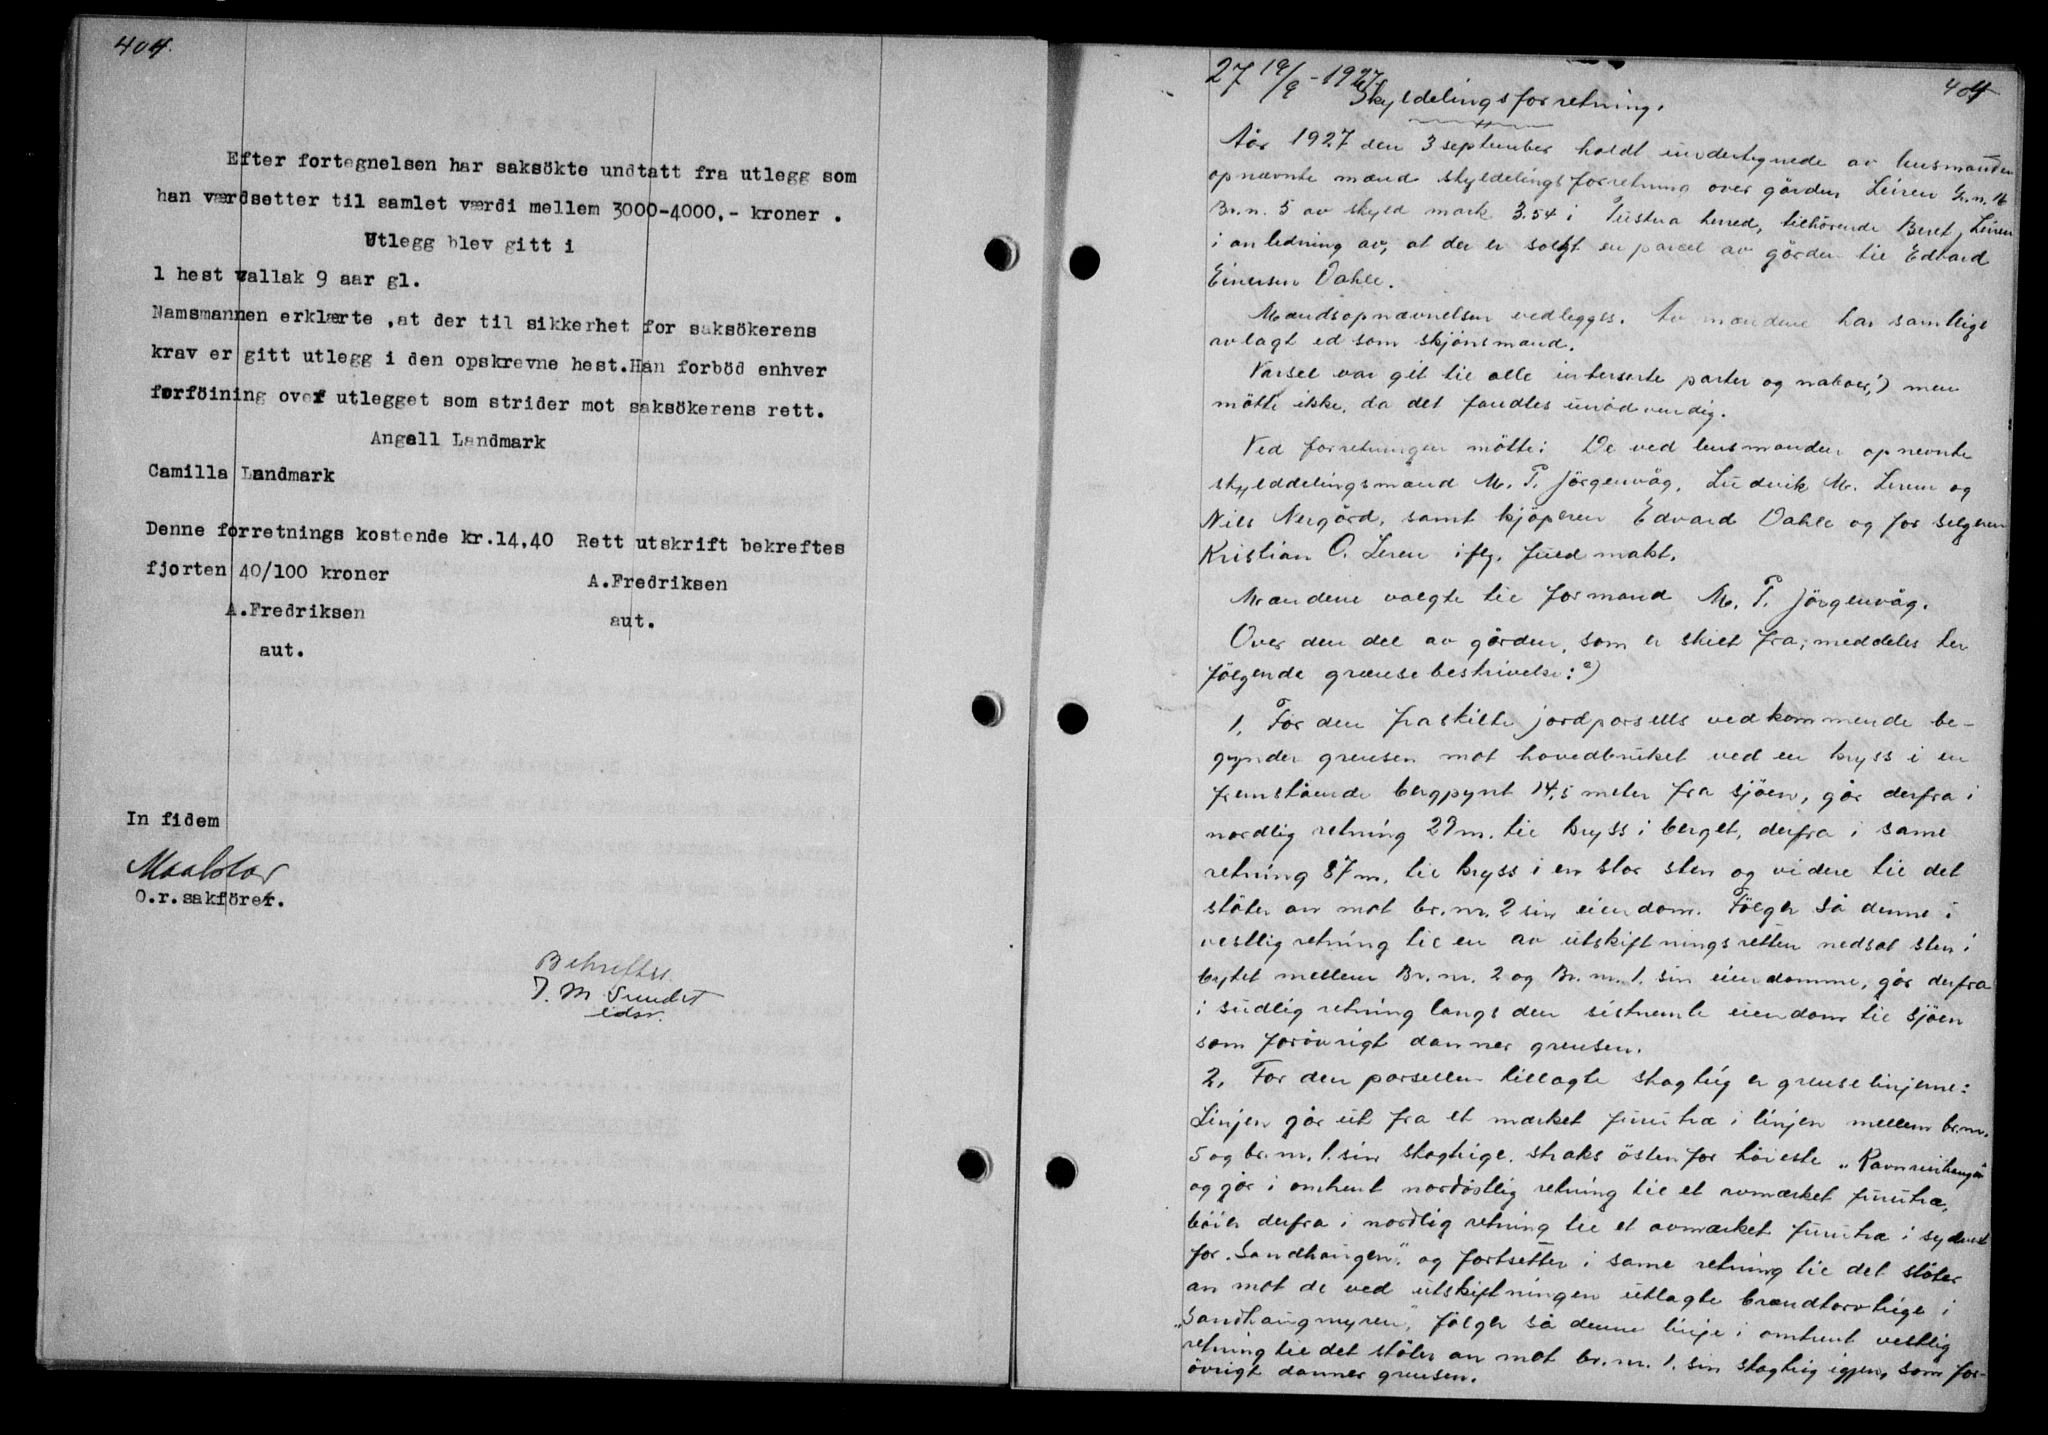 404.
Efter fortegnelsen har saksökte undtatt fra utlegg som
han værdsetter til samlet værdi mellem 3000-4000,- kroner .
Utlegg blev gitt i
1 hest vallak 9 aar gl.
Namsmannen erklærte ,at der til sikkerhet for saksökerens
krav er gitt utlegg i den opskrevne hest.Han forböd enhver
forföining over utlegget som strider mot saksökerens rett.
Angell Landmark
Camilla Landmark
Denne forretnings kostende kr.14,40 Rett utskrift bekreftes
fjorten 40/100 kroner A.Fredriksen
A.Fredriksen aut.
aut.
In fidem
O.r.sakförer.
Bekreftes
J. M Sundet
edsv.
27 19/9 - 1927
404
Skyldelingsforretning.
Aår 1927 den 3 september holdt undertegnede av lensmanden
opnævnte mænd skyldelingsforretning over gården Leiren G.n. 16
Br.n. 5 av skyld mark 3.54 i Tustna herred, tilhörende Beret Leiren
i anledning av, at der er solgt en parcel av gården til Edvard
Einersen Vahle.
Mændsopnævnelsen vedlegges. Av mændene har samtlige
avlagt ed som skjönsmænd.
Varsel var git til alle interserte parter og naboer,1) men
mötte ikke, da det fandtes unödvendig.
Ved forretningen mötte: De ved lensmanden opnevnte
skylddelingsmænd M. T. Jörgenvåg, Ludvik M. Leren og
Nils Nergård, samt kjöperen Edvard Vahle og for selgeren
Kristian O. Leren iflg. fuldmakt.
Mændene valgte til formand M. T. Jörgenvåg.
Over den del av gården, som er skilt fra, meddeles her
fölgende grænsebeskrivelse:2)
1. For den fraskilte jordparsells vedkommende be-
gynder grensen mot hovedbruket ved en kryss i en
fremstående bergpynt 14,5 meter fra sjöen, går derfra i
nordlig retning 29 m. til kryss i berget, derfra i same
retning 87 m. til kryss i en stor sten og videre til det
stöter an mot br.nr. 2 sin eiendom. Fölger så denne i
vestlig retning til en av utskiftningsretten nedsat sten i
bytet mellem Br. nr. 2 og Br. nr. 1. sin eiendomme, går derfra
i sudlig retning langs den sistnemte eiendom til sjöen
som forövrigt danner grensen.
2. For den parsellen tillagte skogteig er grenselinjerne:
Linjen går ut fra et mærket furutræ i linjen mellem br.nr.
5 og br. nr. 1. sin skogteige. straks östenfor höieste "Ravnreirhaugen
og går i omtrent nordöstlig retning til et avmærket furutræ,
böier derfra i nordlig retning til et avmærket furutræ i sydvest
for "Sandhaugen", og fortsetter i same retning til det stöter
an mot de ved utskiftningen utlagte brændtorvteige i
"Sandhaugmyren", fölger så denne linje i omtrent vestlig
retning til det stöter an mot br. nr. 1. sin skogteig igjen, som for-
övrigt danner grensen.